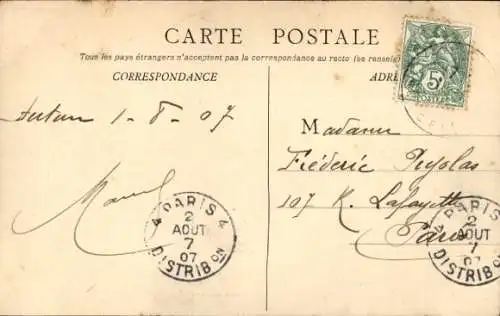 CARTE POSTALE
Tous les pays étrangers n'acceptent pas la correspondance au recto (se renseign
CORRESPONDANCE
ADRE
5c
POSTES
Autun 1-8-07
Madame
Fréderic Puyolas
107 R. Lafayette
Paris
Marcel
4 PARIS 4
2
AOUT
7
07
DISTRIBON
4 PARIS
2
AOUT
7
07
DISTRIBON